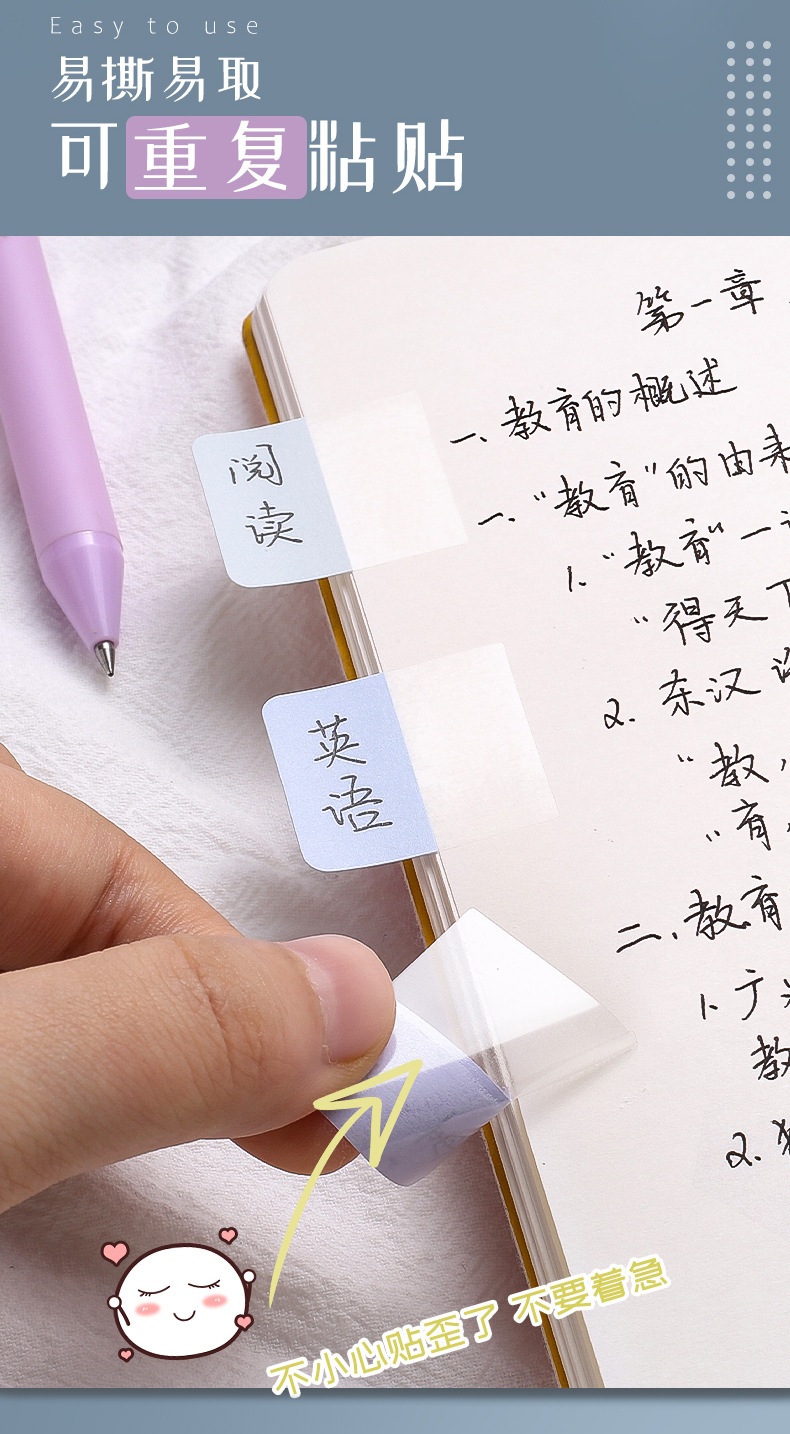 Easy to use
易撕易取
可重复粘贴
第一章
一、教育的概述
一、"教育"的由来
1、"教育"一
"得天下
2、东汉
"教,
"育,
二、教育
1、广
教
2、
阅
读
英
语
不小心贴歪了 不要着急